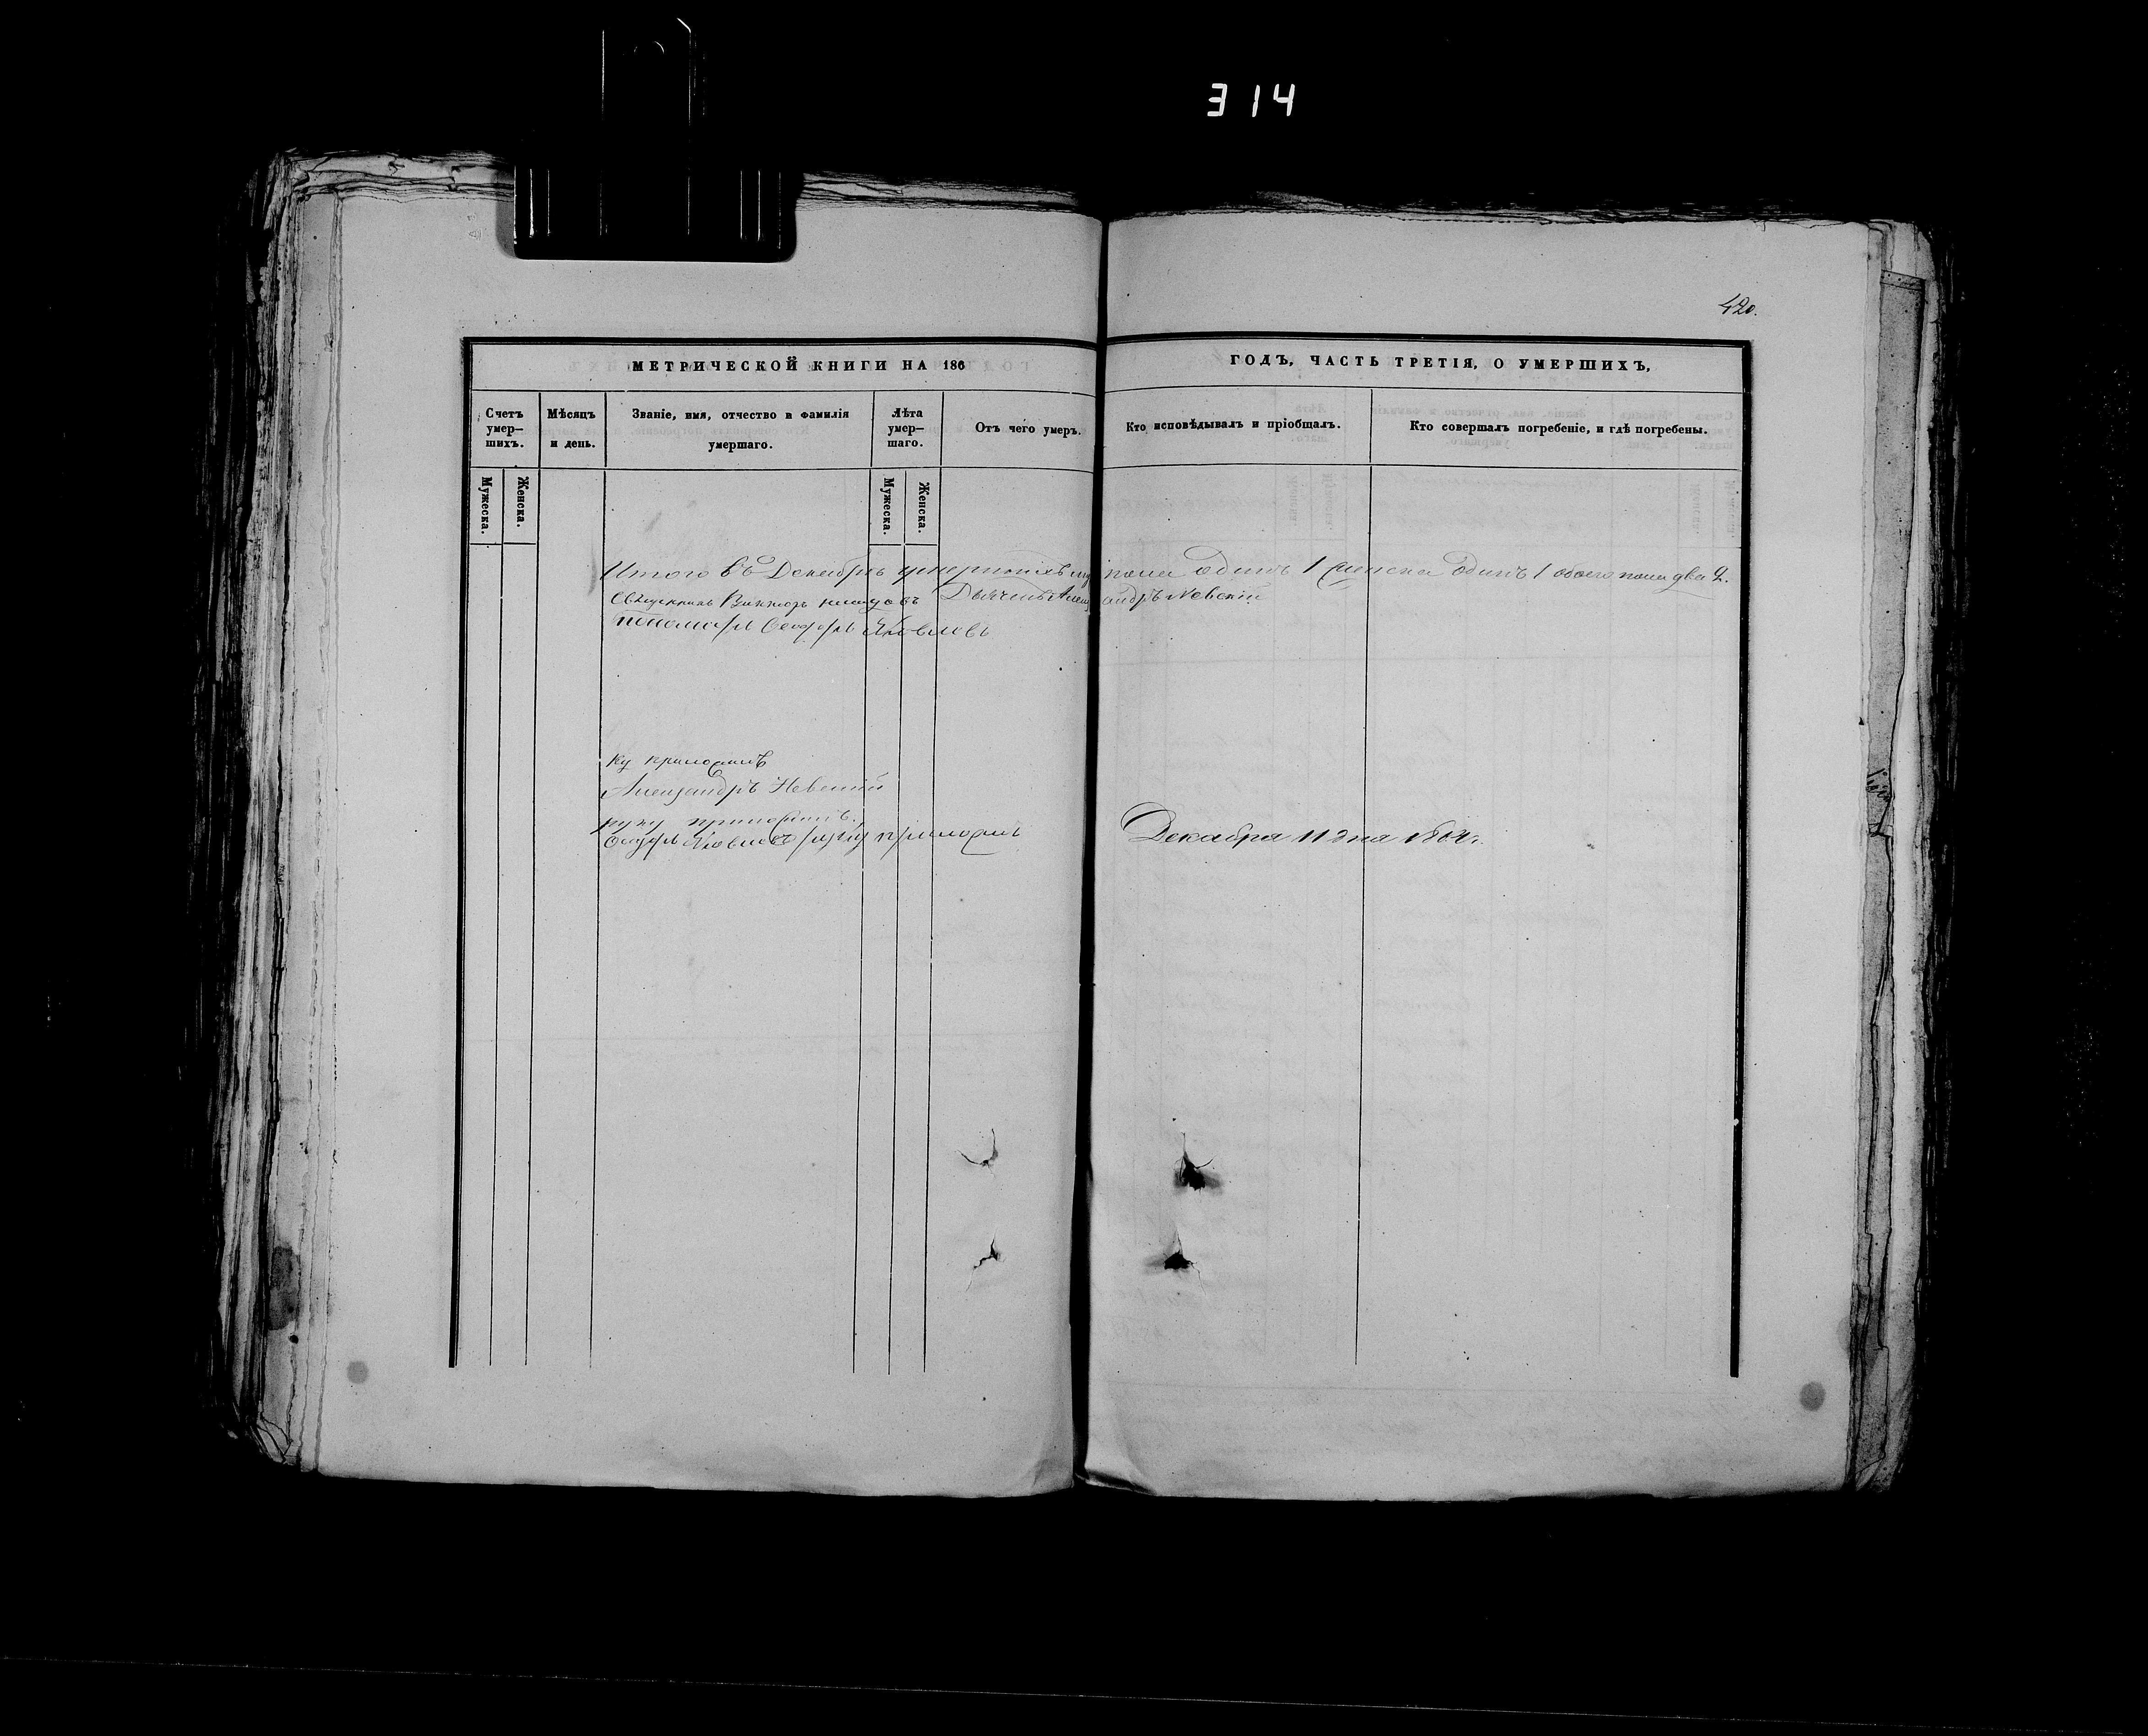 314
420.
МЕТРИЧЕСКОЙ КНИГИ НА 186
ГОДЪ, ЧАСТЬ ТРЕТІЯ, О УМЕРШИХЪ,
Счетъ умер–шихъ.
Мѣсяцъ и день.
Званіе, имя, отчество и фамилія умершаго.
Лѣта умер–шаго.
Отъ чего умеръ.
Кто исповѣдывалъ и пріобщалъ.
Кто совершалъ погребеніе, и гдѣ погребены.
Мужеска.
Женска.
Мужеска.
Женска.
Итого въ Декабрѣ умершихъ пола одинъ 1 женска одинъ 1 обоего пола два 2.
Священникъ Викторъ Дьячекъ Александръ Невскій
пономарь Ѳеодоръ Яковлевъ
ку приложилъ
Александръ Невскій
руку приложилъ.
Ѳеодоръ Яковлевъ руку приложилъ
Декабря 11 дня